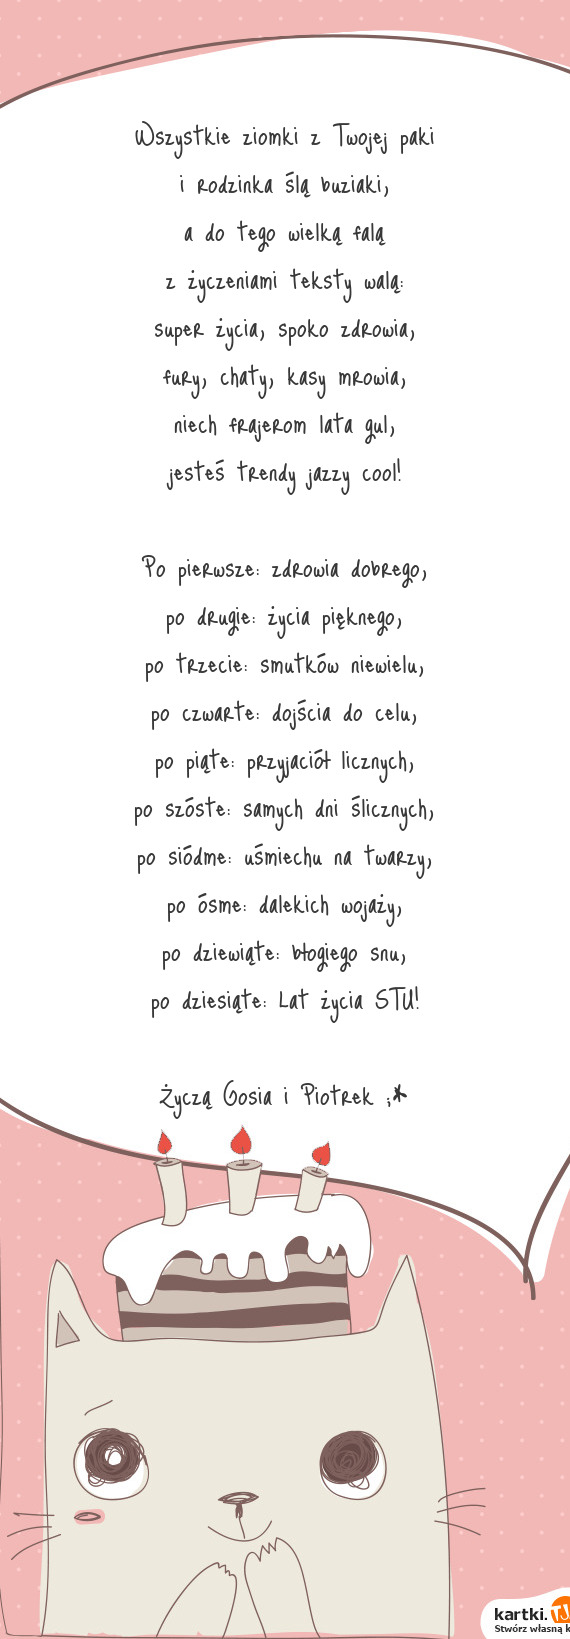 Wszystkie ziomki z Twojej paki
i rodzinka ślą buziaki,
a do tego wielką falą
z życzeniami teksty walą:
super życia, spoko zdrowia,
fury, chaty, kasy mrowia,
niech frajerom lata gul,
jesteś trendy jazzy cool!
Po pierwsze: zdrowia dobrego,
po drugie: życia pięknego,
po trzecie: smutków niewielu,
po czwarte: dojścia do celu,
po piąte: przyjaciół licznych,
po szóste: samych dni ślicznych,
po siódme: uśmiechu na twarzy,
po ósme: dalekich wojaży,
po dziewiąte: błogiego snu,
po dziesiąte: Lat życia STU!
Życzą Gosia i Piotrek ;*
kartki.TJ
Stwórz własną k